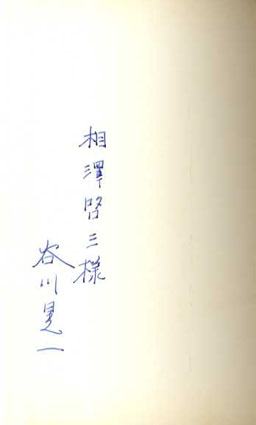 相澤啓三様
谷川晃一